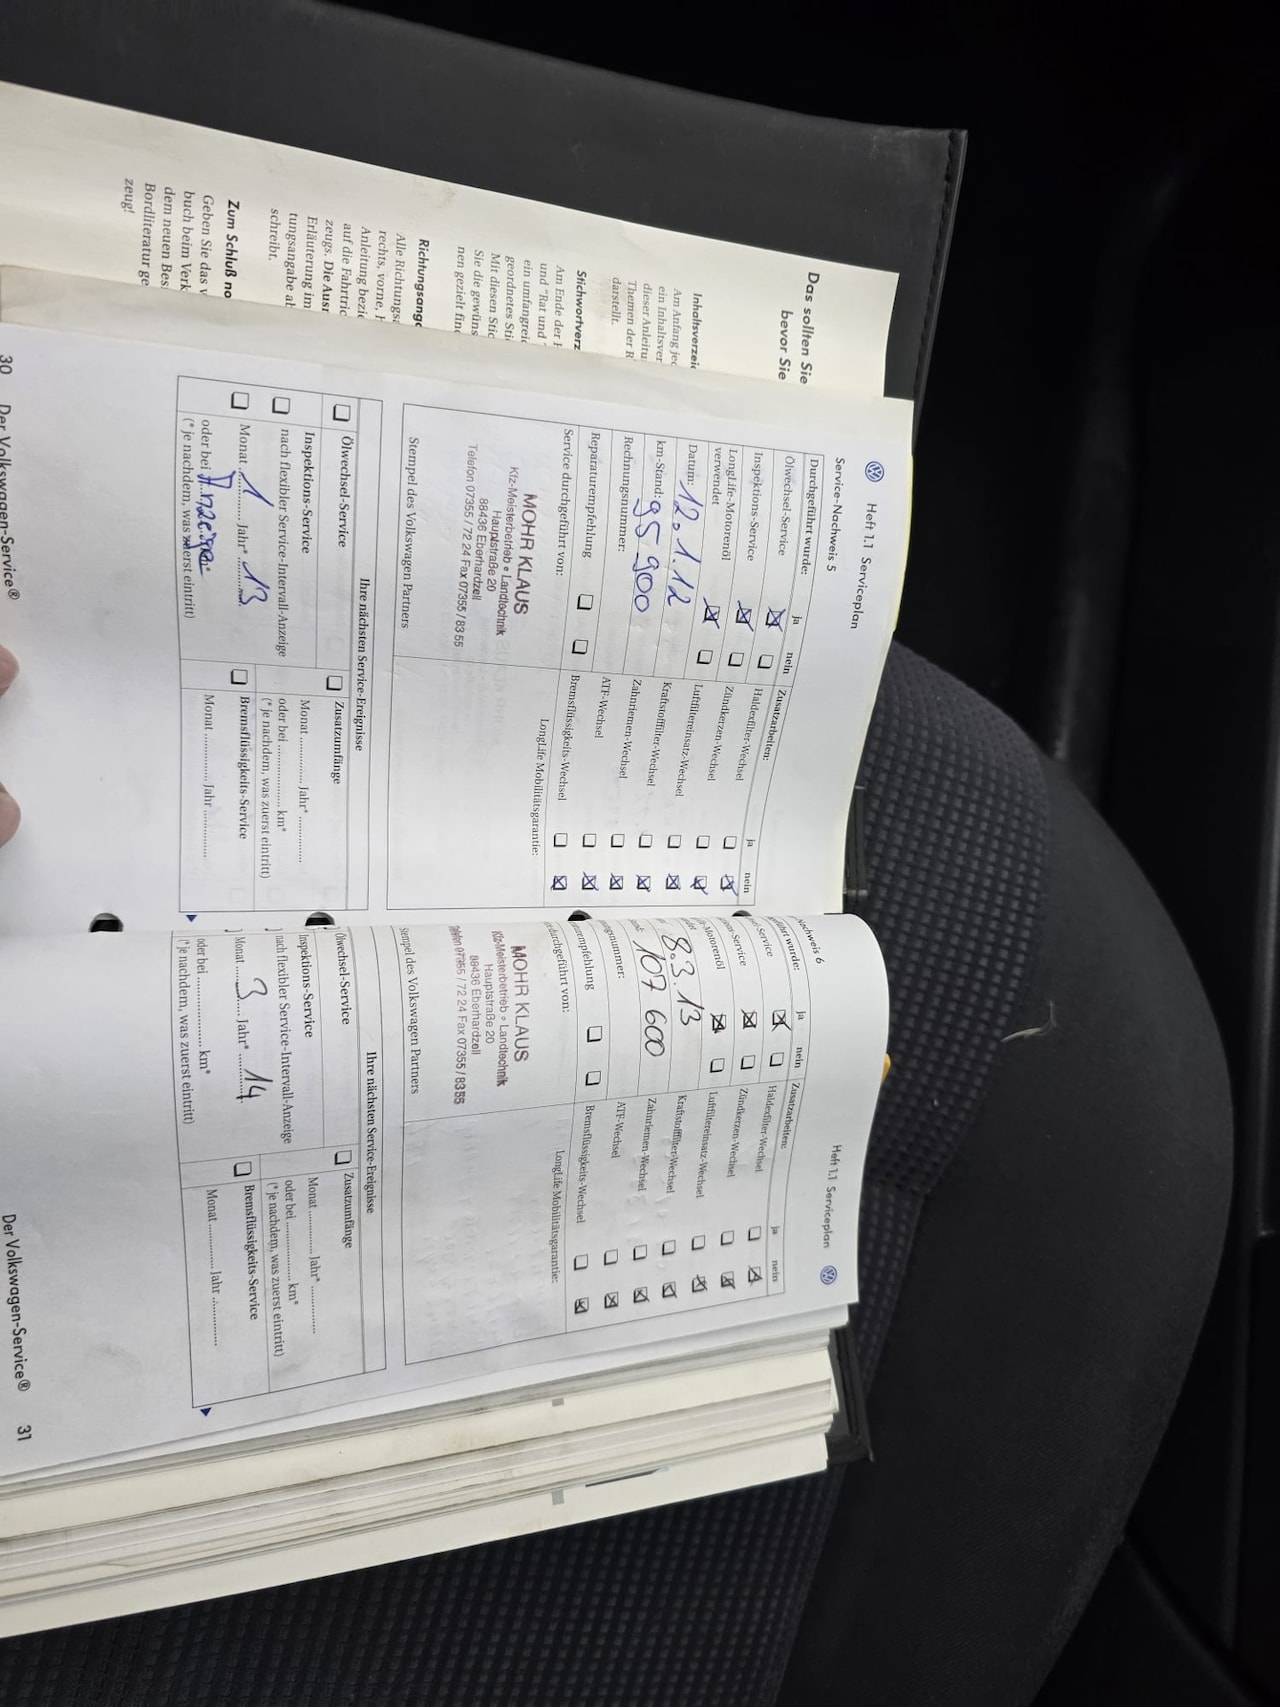 Das sollten Sie
bevor Sie
Inhaltsverzeic
Am Anfang jed
ein Inhaltsver
dieser Anleitu
Themen der R
darstellt.
Stichwortverz
Am Ende der B
und "Rat und T
ein umfangreic
geordnetes Sti
Mit diesen Stic
Sie die gewüns
nen gezielt find
Richtungsanga
Alle Richtungsa
rechts, vorne, h
Anleitung bezie
auf die Fahrtric
zeugs. Die Ausn
Erläuterung im
tungsangabe ab
schreibt.
Zum Schluß no
Geben Sie das v
buch beim Verk
dem neuen Besi
Bordliteratur ge
zeug!
Heft 1.1 Serviceplan
Service-Nachweis 5
Durchgeführt wurde: ja nein
Ölwechsel-Service
Inspektions-Service
LongLife-Motorenöl
verwendet
Datum: 12.1.12
km-Stand: 95 900
Rechnungsnummer:
Reparaturempfehlung
Service durchgeführt von:
MOHR KLAUS
Kfz-Meisterbetrieb • Landtechnik
Hauptstraße 20
88436 Eberhardzell
Telefon 07355 / 72 24 Fax 07355 / 83 55
Stempel des Volkswagen Partners
Zusatzarbeiten: ja nein
Haldexfilter-Wechsel
Zündkerzen-Wechsel
Luftfiltereinsatz-Wechsel
Kraftstofffilter-Wechsel
Zahnriemen-Wechsel
ATF-Wechsel
Bremsflüssigkeits-Wechsel
LongLife Mobilitätsgarantie:
Ihre nächsten Service-Ereignisse
Ölwechsel-Service
Inspektions-Service
nach flexibler Service-Intervall-Anzeige
Monat 1 Jahr* 13
oder bei Anzeige
(* je nachdem, was zuerst eintritt)
Zusatzumfänge
Monat ............ Jahr* ............
oder bei .................. km*
(* je nachdem, was zuerst eintritt)
Bremsflüssigkeits-Service
Monat ............ Jahr ............
30 Der Volkswagen-Service®
Heft 1.1 Serviceplan
Nachweis 6
führt wurde: ja nein
-Service
ns-Service
e-Motorenöl
det
8.3.13
107 600
ngsnummer:
urempfehlung
durchgeführt von:
MOHR KLAUS
Kfz-Meisterbetrieb • Landtechnik
Hauptstraße 20
88436 Eberhardzell
Telefon 07355 / 72 24 Fax 07355 / 83 55
Stempel des Volkswagen Partners
Zusatzarbeiten: ja nein
Haldexfilter-Wechsel
Zündkerzen-Wechsel
Luftfiltereinsatz-Wechsel
Kraftstofffilter-Wechsel
Zahnriemen-Wechsel
ATF-Wechsel
Bremsflüssigkeits-Wechsel
LongLife Mobilitätsgarantie:
Ihre nächsten Service-Ereignisse
Ölwechsel-Service
Inspektions-Service
nach flexibler Service-Intervall-Anzeige
Monat 3 Jahr* 14
oder bei .................. km*
(* je nachdem, was zuerst eintritt)
Zusatzumfänge
Monat ............ Jahr* ............
oder bei .................. km*
(* je nachdem, was zuerst eintritt)
Bremsflüssigkeits-Service
Monat ............ Jahr ............
Der Volkswagen-Service® 31